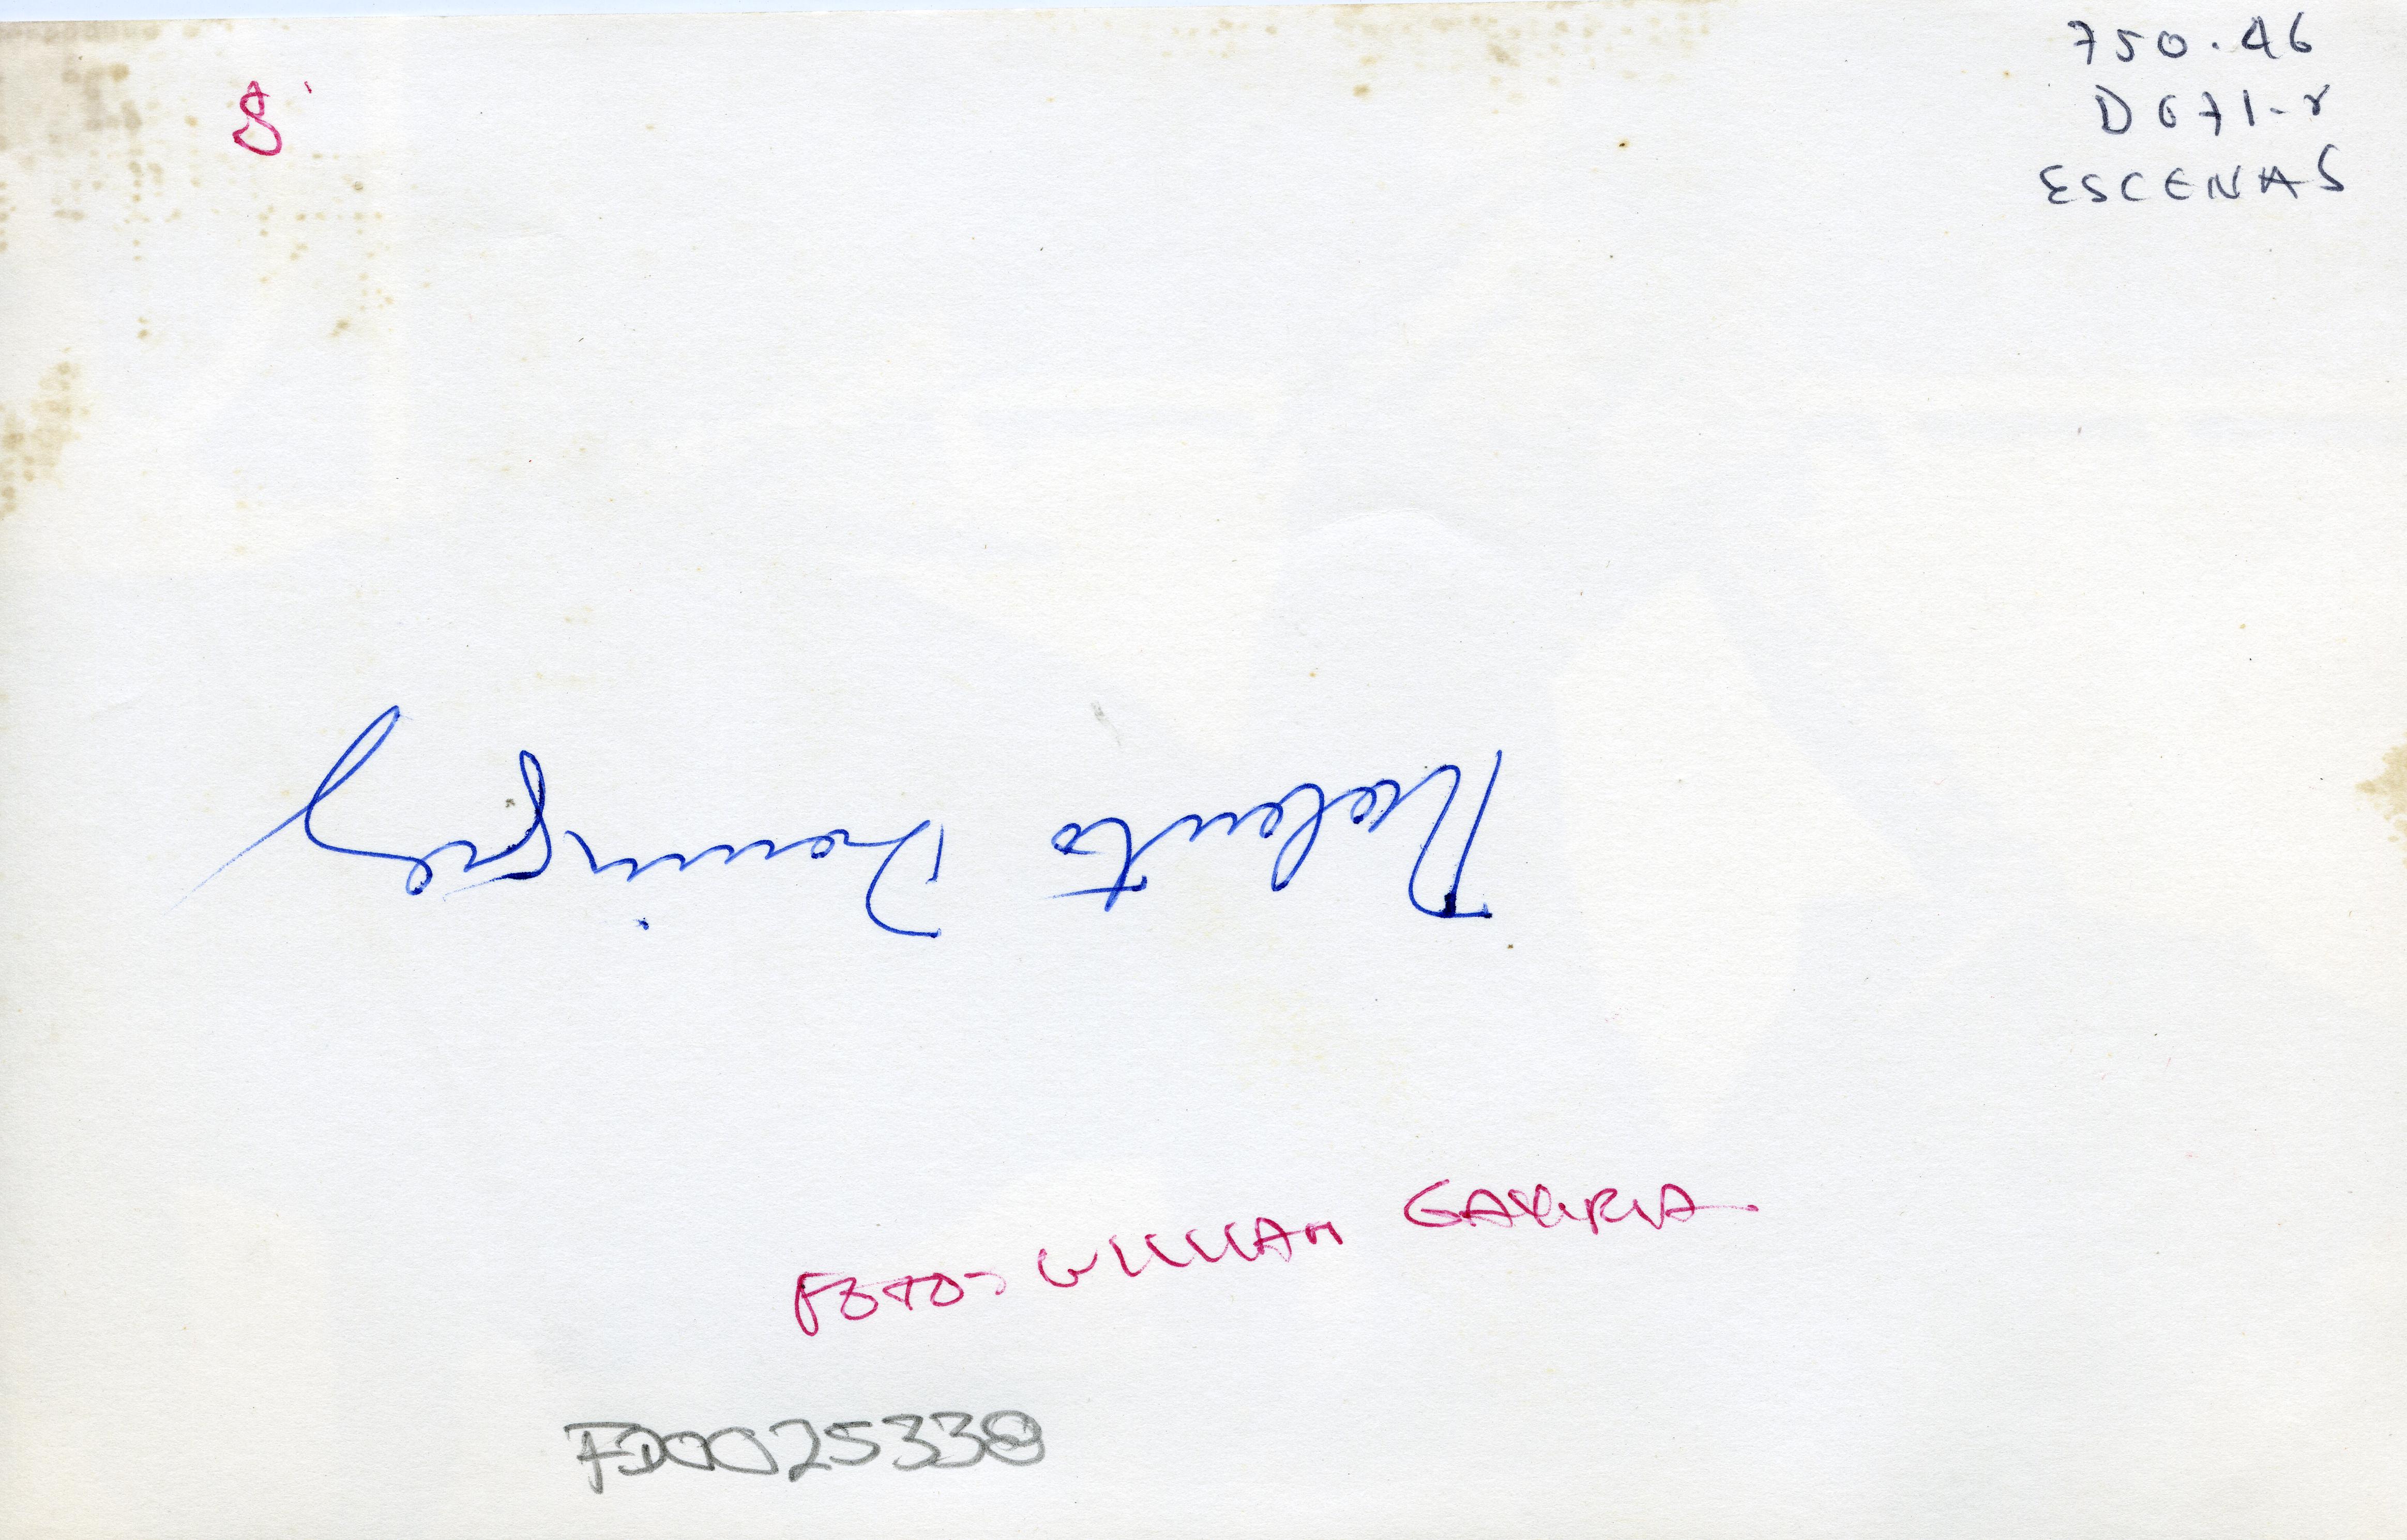 8
750.46
D671-r
ESCENAS
Roberto Dominguez
FOTOS WILLIAM GAVIRIA
FD0025338